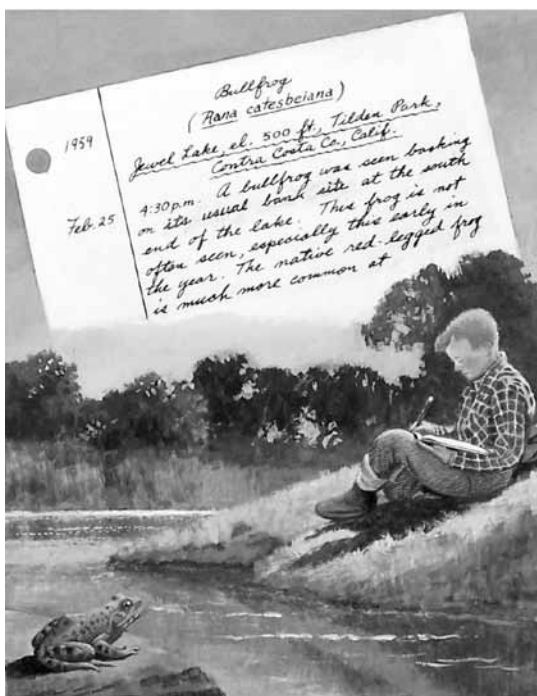 Bullfrog
(Rana catesbeiana)
1959
Jewel Lake, el. 500 ft., Tilden Park,
Contra Costa Co., Calif.
Feb. 25
4:30 p.m. A bullfrog was seen basking
on its usual bank site at the south
end of the lake. This frog is not
often seen, especially this early in
the year. The native red-legged frog
is much more common at